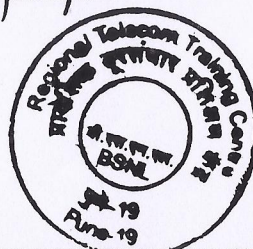 Regional Telecom Training Centre
क्षेत्रीय दूरसंचार प्रशिक्षण केंद्र
बी. एस. एन. एल.
BSNL
पुणे-19
Pune-19